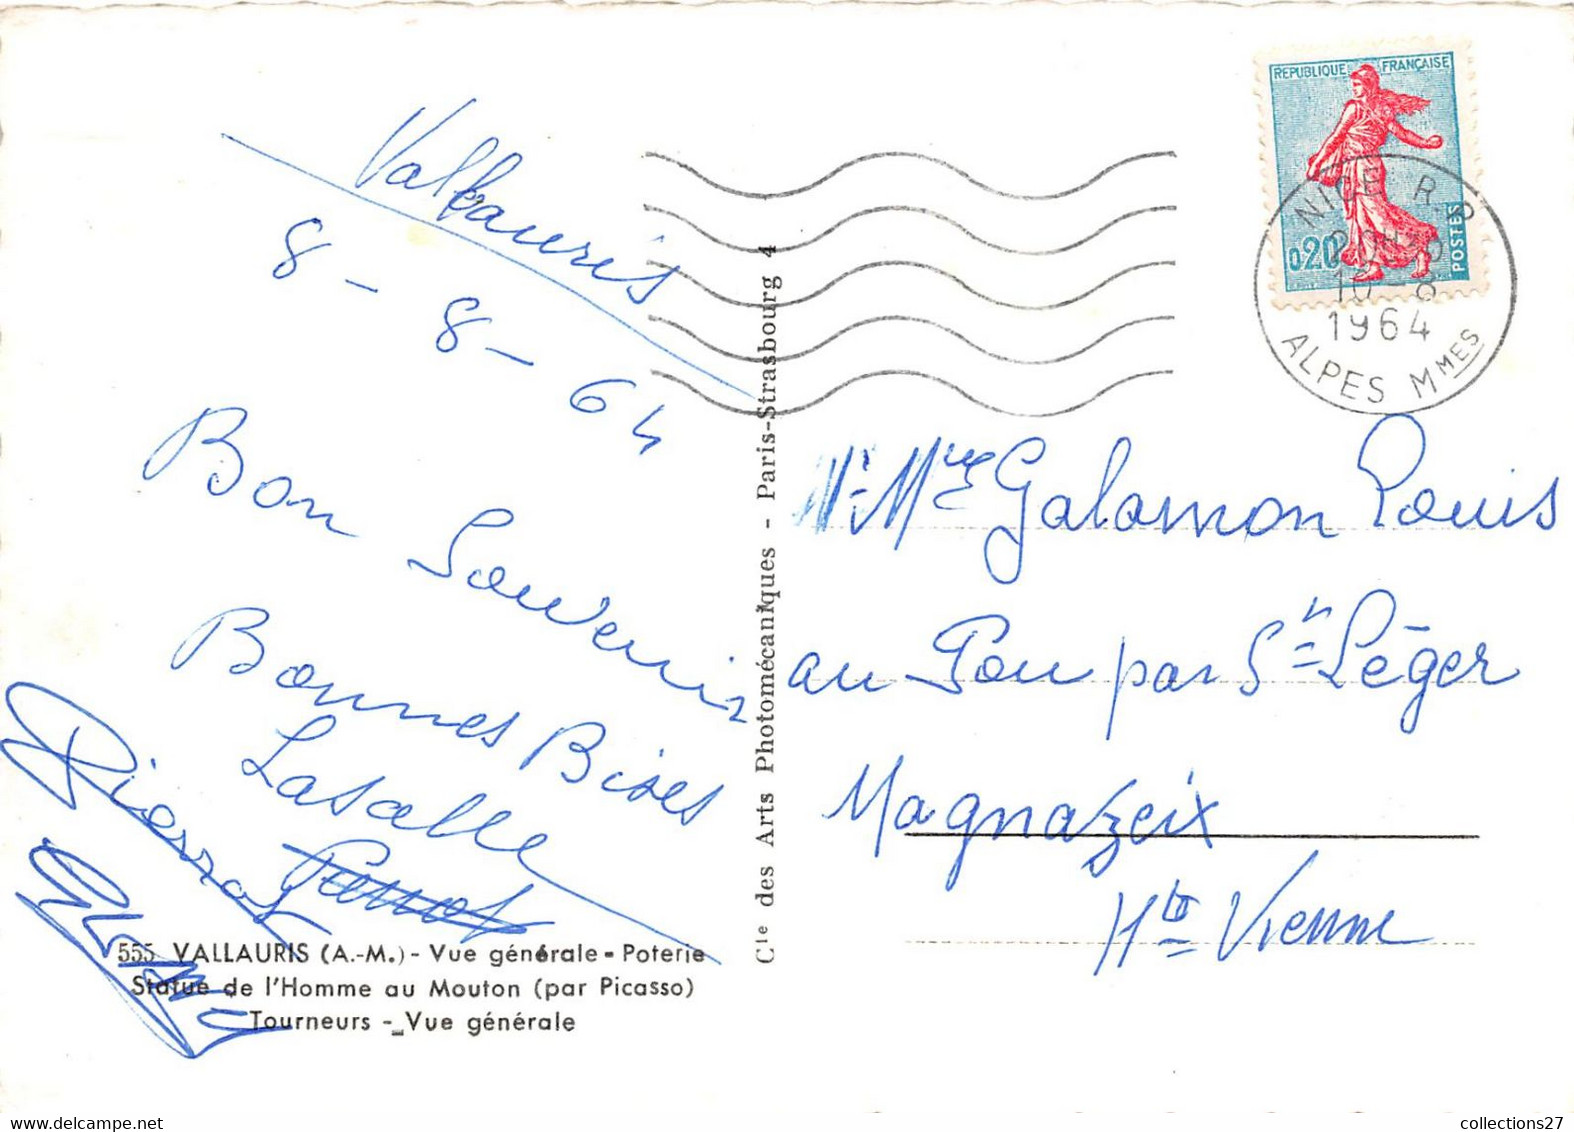 Vallauris
8 - 8 - 64
Bon Souvenir
Bonnes Bises
Lasalle
Pierrot
555 VALLAURIS (A.-M.) - Vue générale - Poterie
Statue de l'Homme au Mouton (par Picasso)
Tourneurs - Vue générale
Cie des Arts Photomécaniques - Paris-Strasbourg 4
REPUBLIQUE FRANÇAISE
0,20
POSTES
NICE R.P
10-8
1964
ALPES MMES
Mr Mme Galamon Louis
au Pou par St Léger
Magnazeix
Hte Vienne
collections27